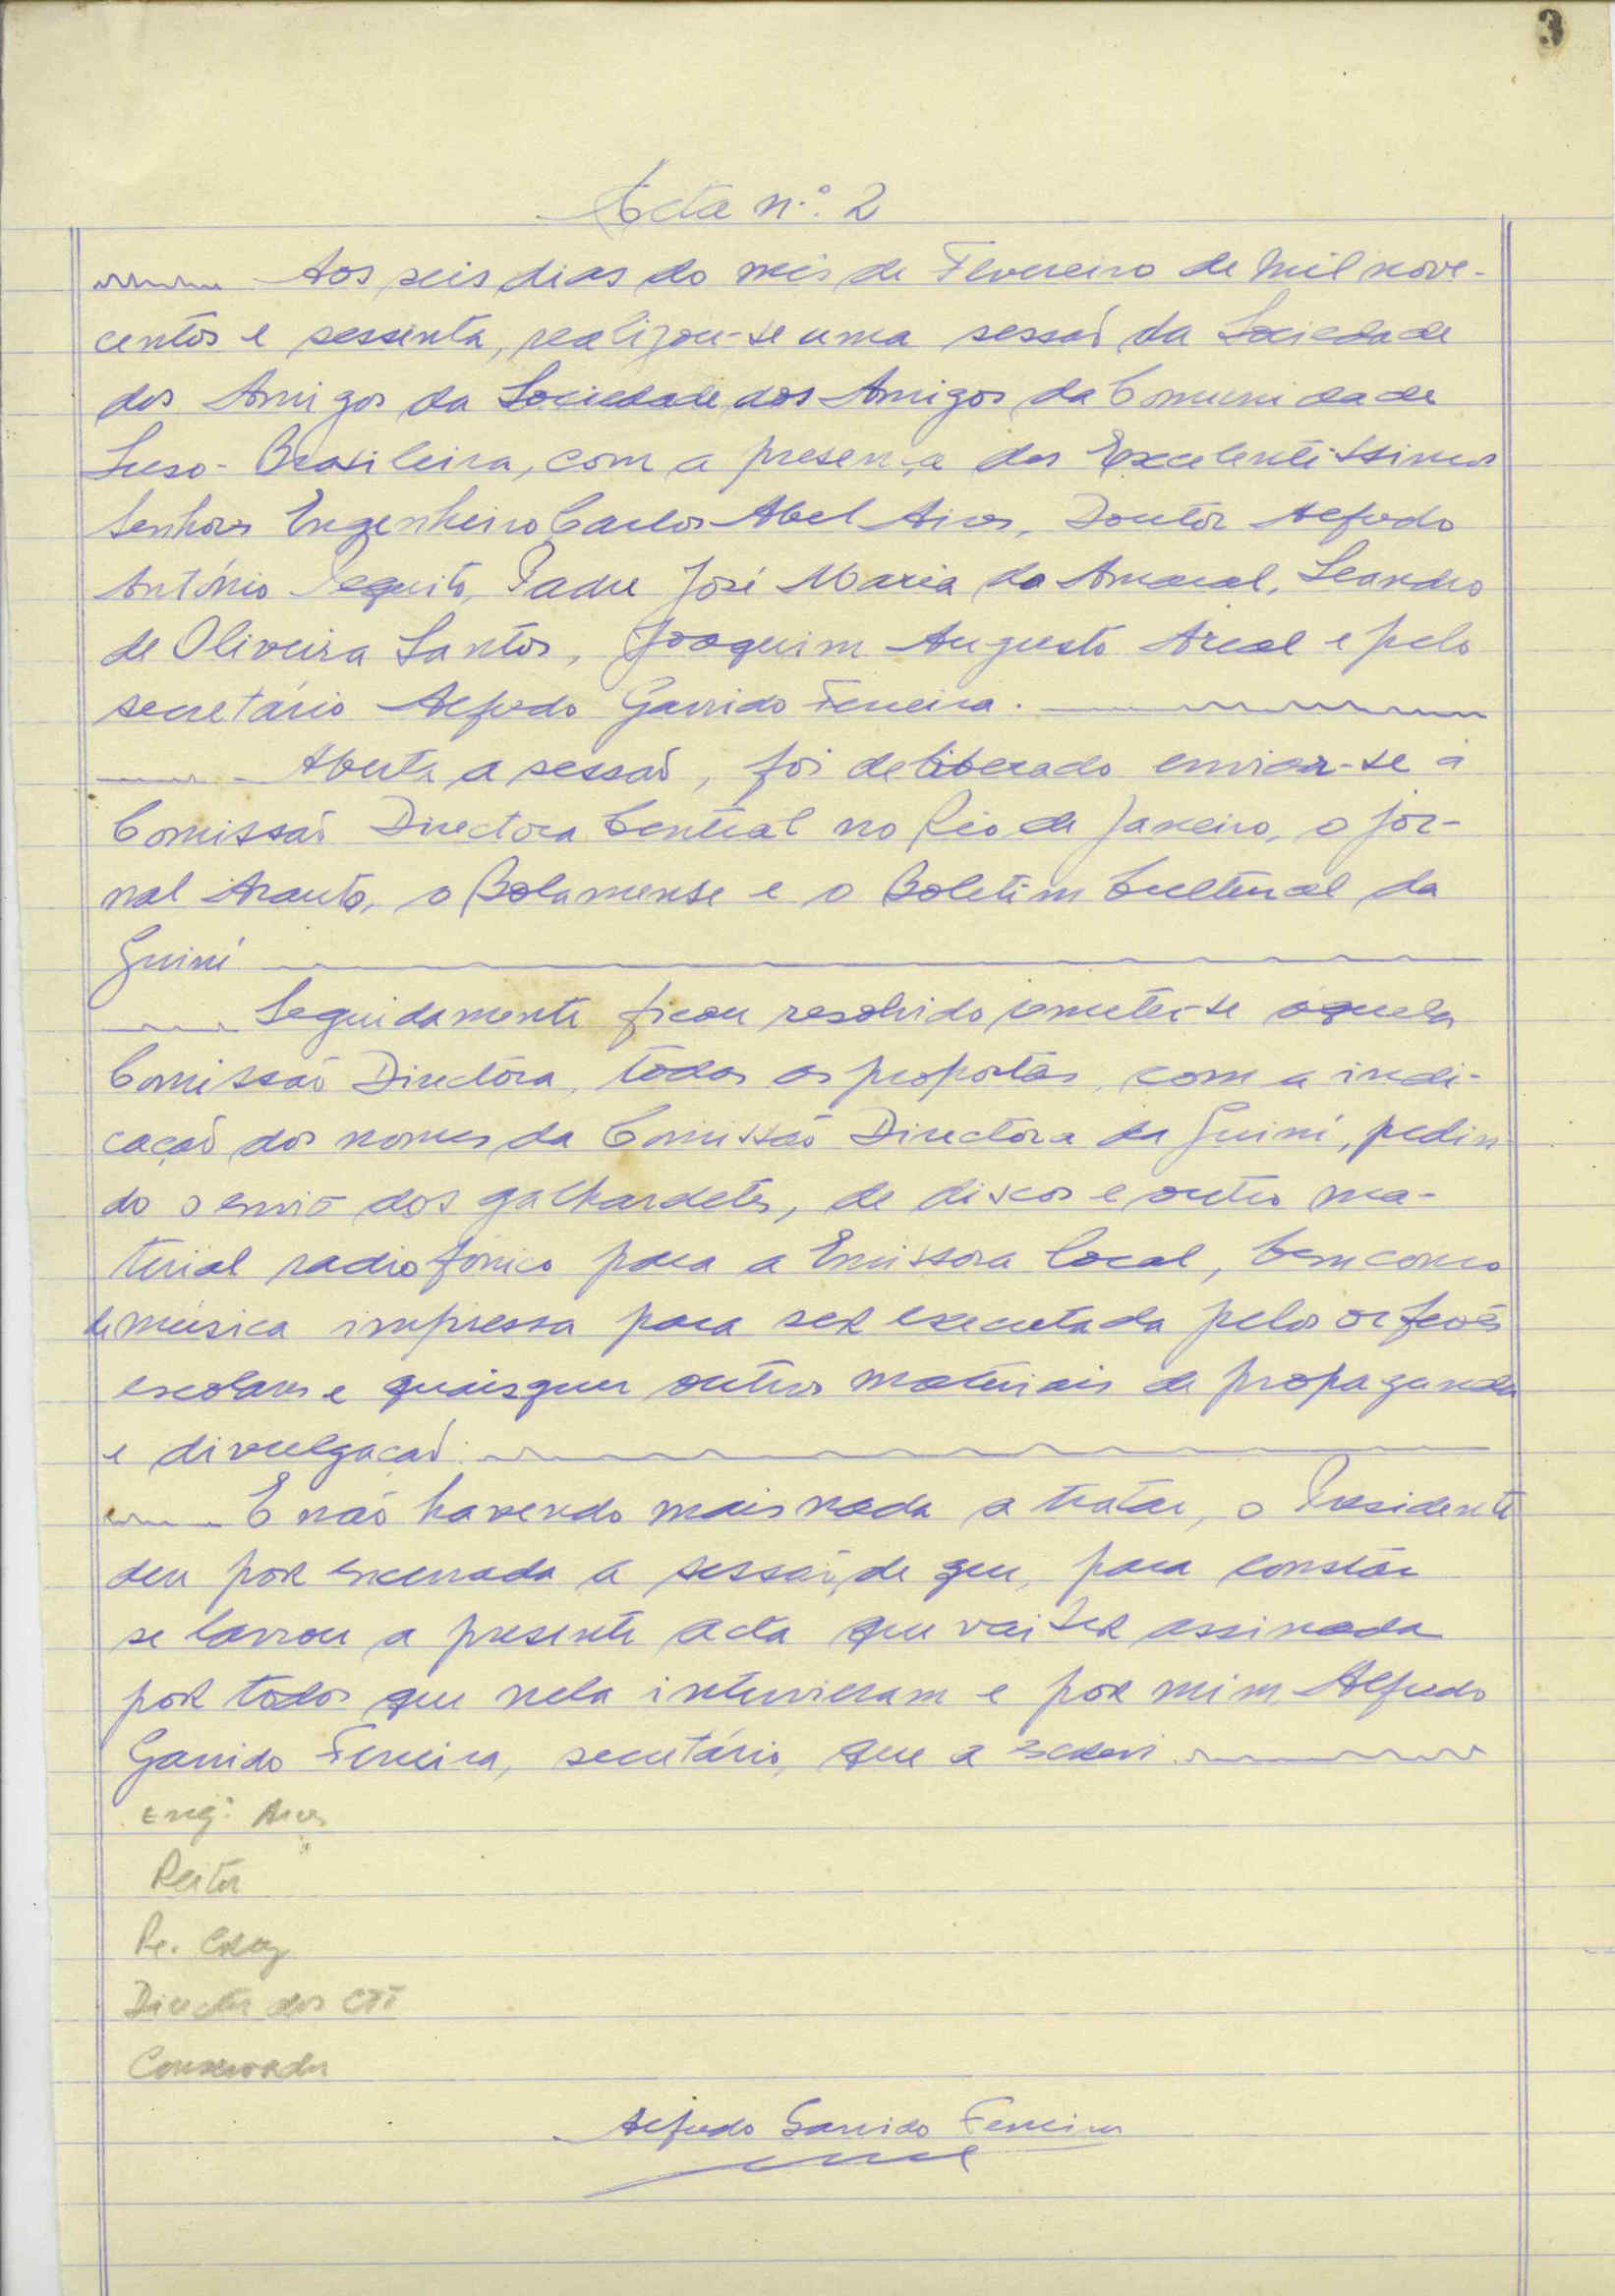 3
Acta n.º 2
Aos seis dias do mês de Fevereiro de mil nove-
centos e sessenta, realizou-se uma sessão da Sociedade
dos Amigos da Sociedade dos Amigos da Comunidade
Luso-Brasileira, com a presença dos Excelentíssimos
Senhores Engenheiro Carlos Abel Aires, Doutor Alfredo
António Pequito, Padre José Maria do Amaral, Leandro
de Oliveira Santos, Joaquim Augusto Areal e pelo
secretário Alfredo Garrido Ferreira.
Aberta a sessão, foi deliberado enviar-se à
Comissão Directora Central no Rio de Janeiro, o jor-
nal Arauto, o Bolamense e o Boletim Cultural da
Guiné
Seguidamente ficou resolvido remeter-se àquela
Comissão Directora, todas as propostas, com a indi-
cação dos nomes da Comissão Directora da Guiné, pedin
do o envio dos galhardetes, de discos e outro ma-
terial radiofónico para a Emissora local, bem como
de música impressa para ser executada pelos orfeões
escolares e quaisquer outros materiais de propaganda
e divulgação.
E não havendo mais nada a tratar, o Presidente
deu por encerrada a sessão, de que, para constar
se lavrou a presente acta que vai ser assinada
por todos que nela intervieram e por mim Alfredo
Garrido Ferreira, secretário, que a redigi
Eng.º Aires
Reitor
Pe. Cruz
Director dos CTT
Conservador
Alfredo Garrido Ferreira